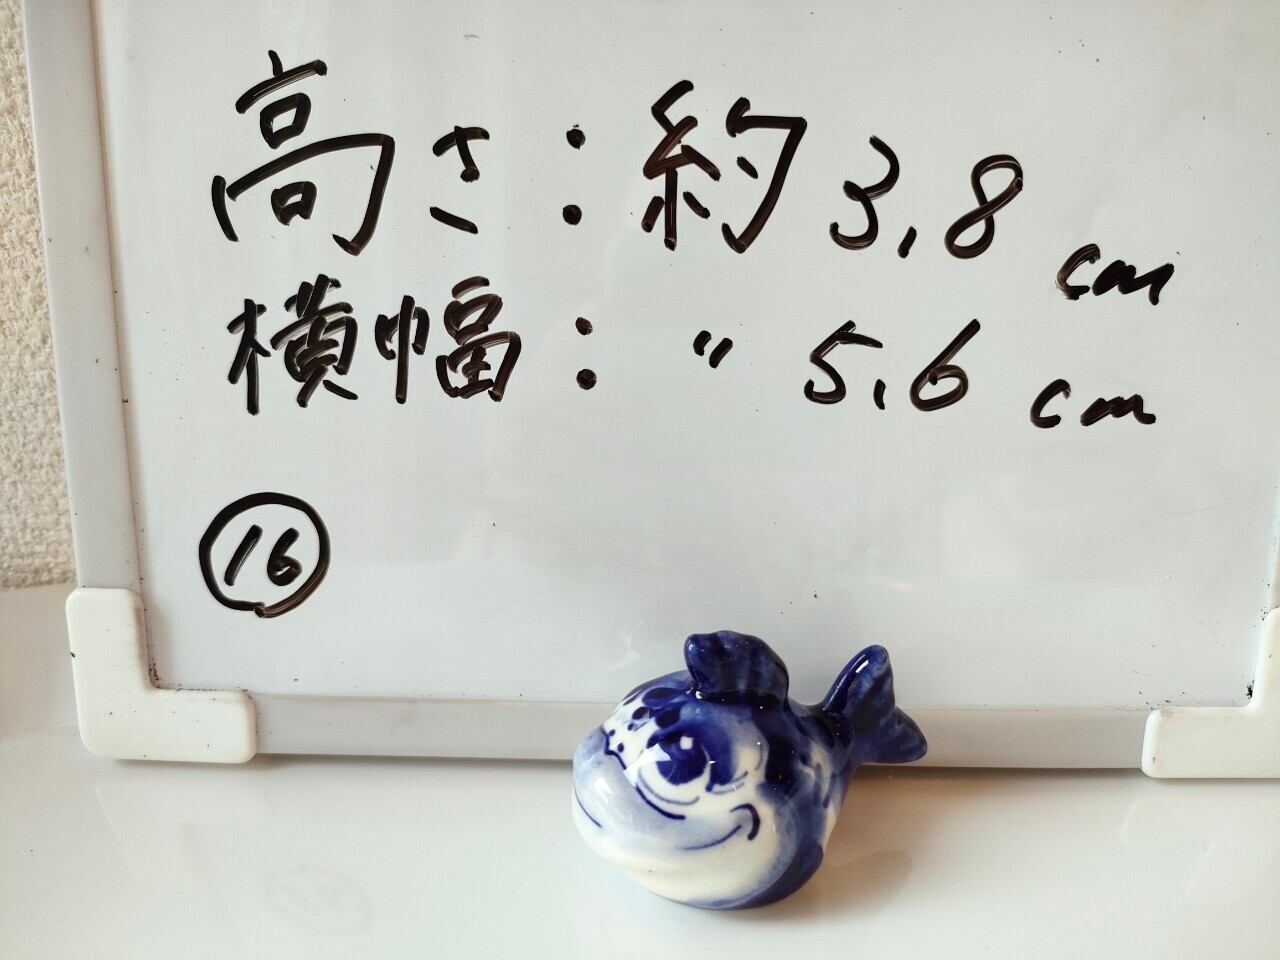 高さ:約3.8cm
横幅:〃5.6cm
⑯